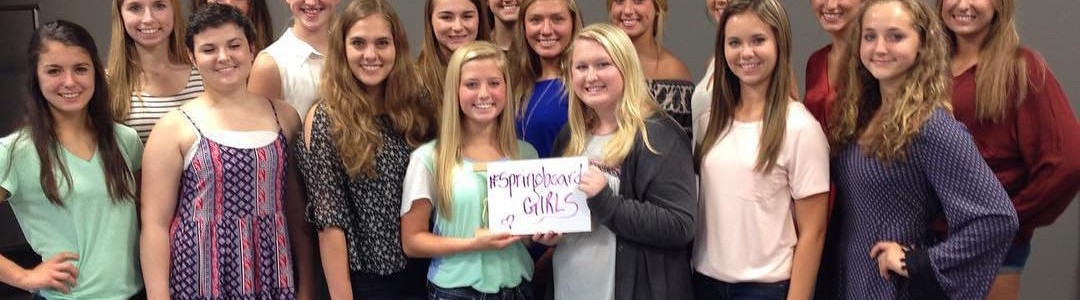 #Springboard
GIRLS